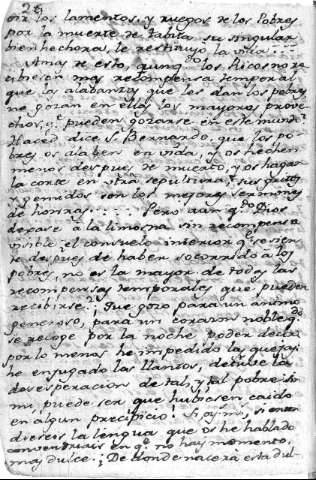 28
oir los lamentos, y ruegos de los Pobres
por la muerte de Tabita su singular
bienhechora, le restituyo la vida....
Amas de esto, aunq.do los Ricos no re
cibiesen mas recompensa temporal
que las alabanzas que les dan los pobres,
no gozan en ellas los mayores prove
chos, q.e pueden gozarse en este mundo?
Haced dice S.n Bernardo, que los po
bres os alaben en vida, y os hechen
menos despues de muertos, y os hagan
la corte en v.tra sepultura; sus gritos
y gemidos son los mejores sermones
de honras.... Pero aun q.do Dios
dexase a la limosna sin recompensa
visible el consuelo interior q.e se sien
te despues de haber socorrido a los
pobres, no es la mayor de todas las
recompensas temporales que pueden
recibirse? ¡Que gozo para un animo
generoso, para un corazon noble q.do
se recoge por la noche poder decir
por lo menos he impedido las quejas,
he enjugado los llantos, detube la
desesperacion de tal, y tal pobre: sin
mi, puede ser que hubiesen caido
en algun precipicio! Si, ay mio, si enten
dieseis la lengua que os he hablado
convendriais en q.e no hay momento,
mas dulce. ¿De donde nacerá esta dul-